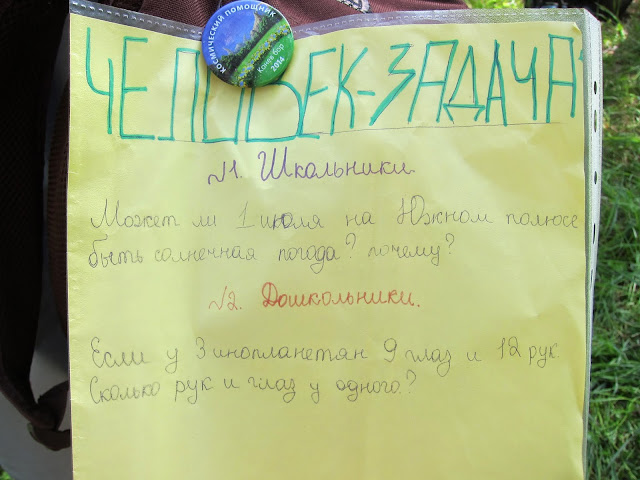 КОСМИЧЕСКИЙ ПОМОЩНИК
Конев бор
2014
ЧЕЛОВЕК-ЗАДАЧА
№1. Школьники.
Может ли 1 июля на Южном полюсе
быть солнечная погода? почему?
№2. Дошкольники.
Если у 3 инопланетян 9 глаз и 12 рук.
Сколько рук и глаз у одного?